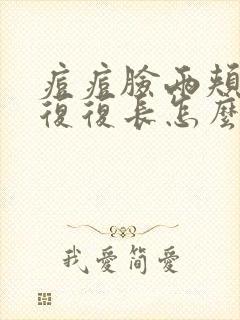 痘痘臉兩頰
復復長怎麼
我愛簡愛